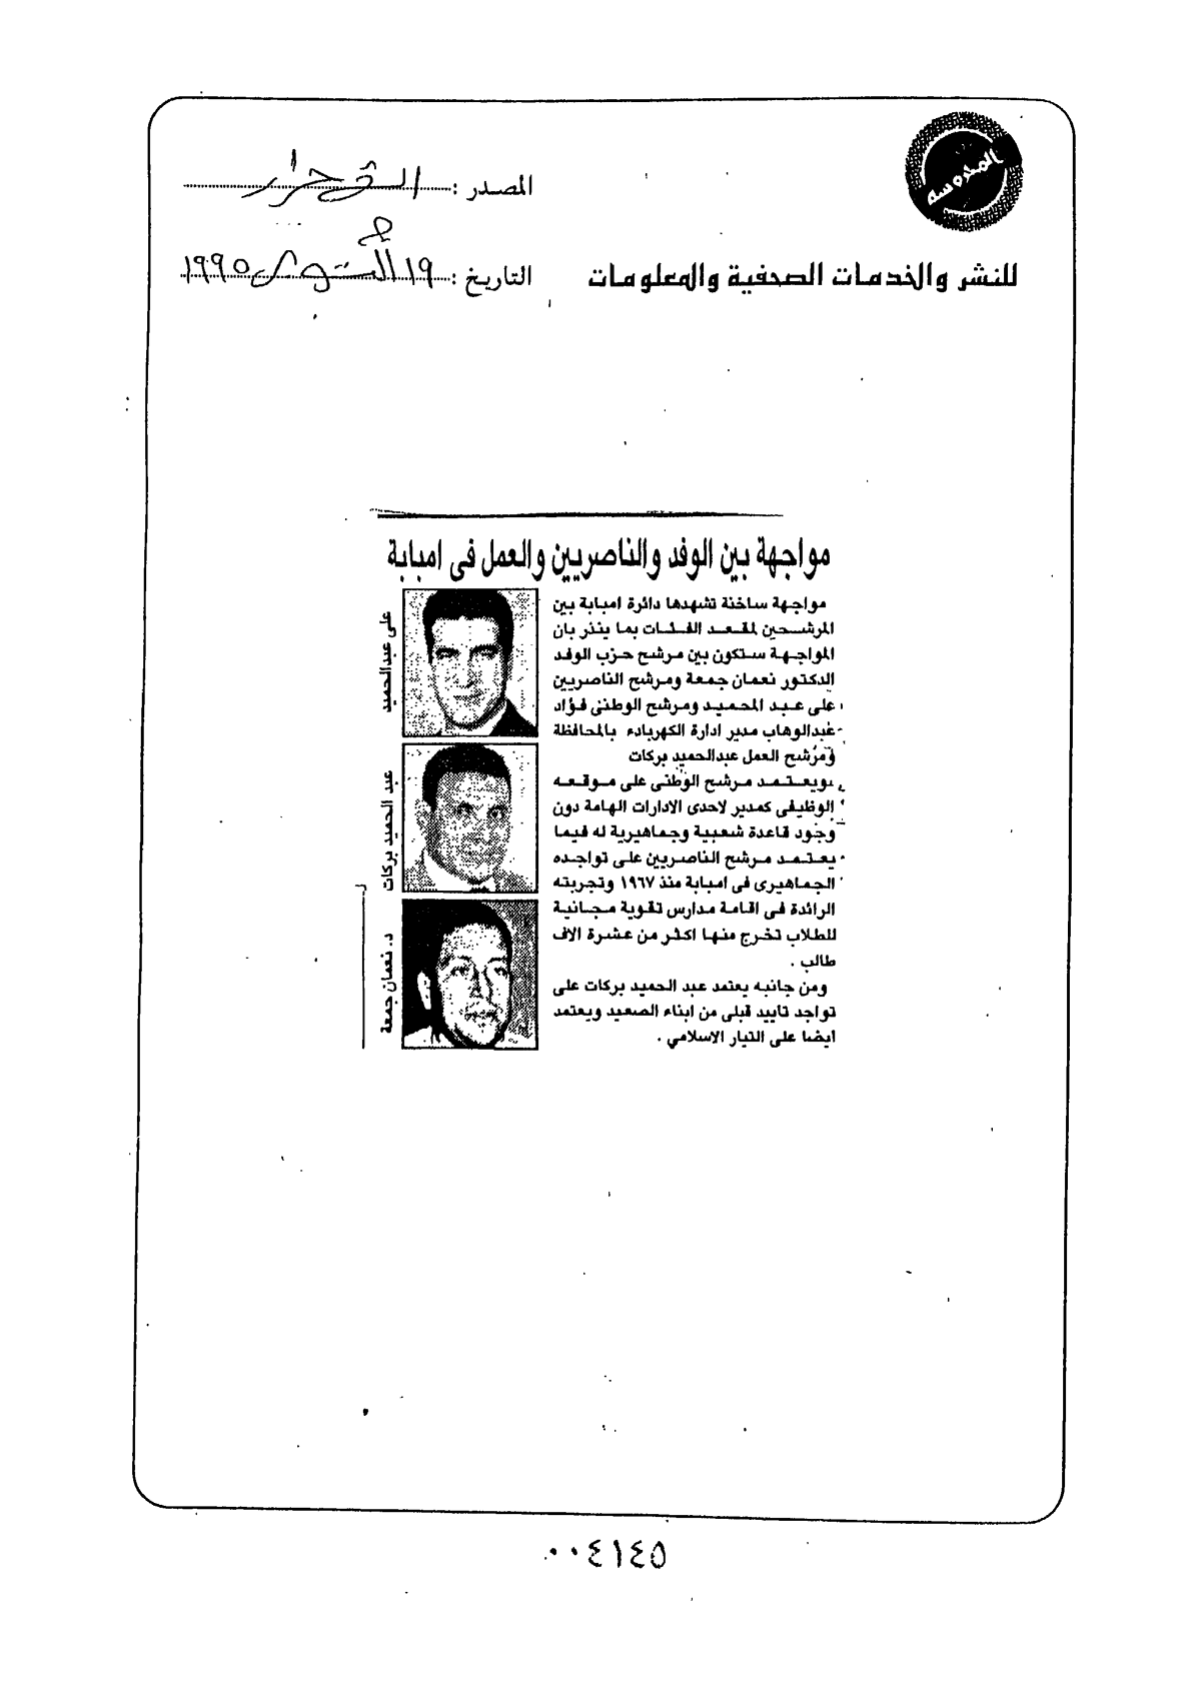 المحروسة
المصدر :
للنشر والخدمات الصحفية والمعلومات
التاريخ : ١٩ ١٩٩٥
مواجهة بين الوفد والناصريين والعمل فى امبابة
مواجهة ساخنة تشهدها دائرة امبابة بين
المرشحين لمقعد الفئات بما ينذر بان
المواجهة ستكون بين مرشح حزب الوفد
الدكتور نعمان جمعة ومرشح الناصريين
على عبد الحميد ومرشح الوطنى فؤاد
عبدالوهاب مدير ادارة الكهرباء بالمحافظة
ومرشح العمل عبدالحميد بركات
ويعتمد مرشح الوطنى على موقعه
الوظيفى كمدير لاحدى الادارات الهامة دون
وجود قاعدة شعبية وجماهيرية له فيما
يعتمد مرشح الناصريين على تواجده
الجماهيرى فى امبابة منذ ١٩٦٧ وتجربته
الرائدة فى اقامة مدارس تقوية مجانية
للطلاب تخرج منها اكثر من عشرة الاف
طالب .
ومن جانبه يعتمد عبد الحميد بركات على
تواجد تاييد قبلى من ابناء الصعيد ويعتمد
ايضا على التيار الاسلامي .
على عبدالحميد
عبد الحميد بركات
د. نعمان جمعة
٠٠٤١٤٥